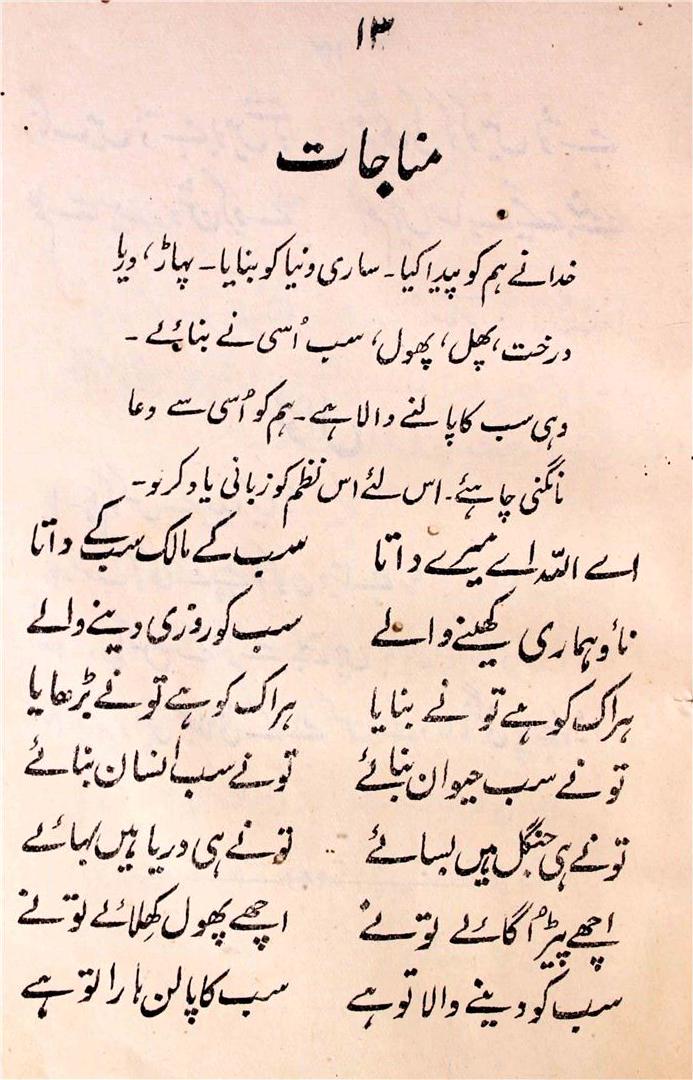 ۱۳
مناجات
خدا نے ہم کو پیدا کیا۔ ساری دنیا کو بنایا۔ پہاڑ، دریا
درخت، پھل، پھول، سب اُسی نے بنائے۔
وہی سب کا پالنے والا ہے۔ ہم کو اُسی سے دعا
مانگنی چاہئے۔ اس لئے اس نظم کو زبانی یاد کر لو۔
اے اللہ اے میرے داتا سب کے مالک سب کے داتا
ناؤ ہماری کھینے والے سب کو روزی دینے والے
ہر اک کو ہے تو نے بنایا ہر اک کو ہے تو نے بڑھایا
تو نے سب حیوان بنائے تو نے سب انسان بنائے
تو نے ہی جنگل ہیں بسائے تو نے ہی دریا ہیں بہائے
اچھے پیڑ اُگائے تو نے اچھے پھول کھِلائے تو نے
سب کو دینے والا تو ہے سب کا پالن ہارا تو ہے